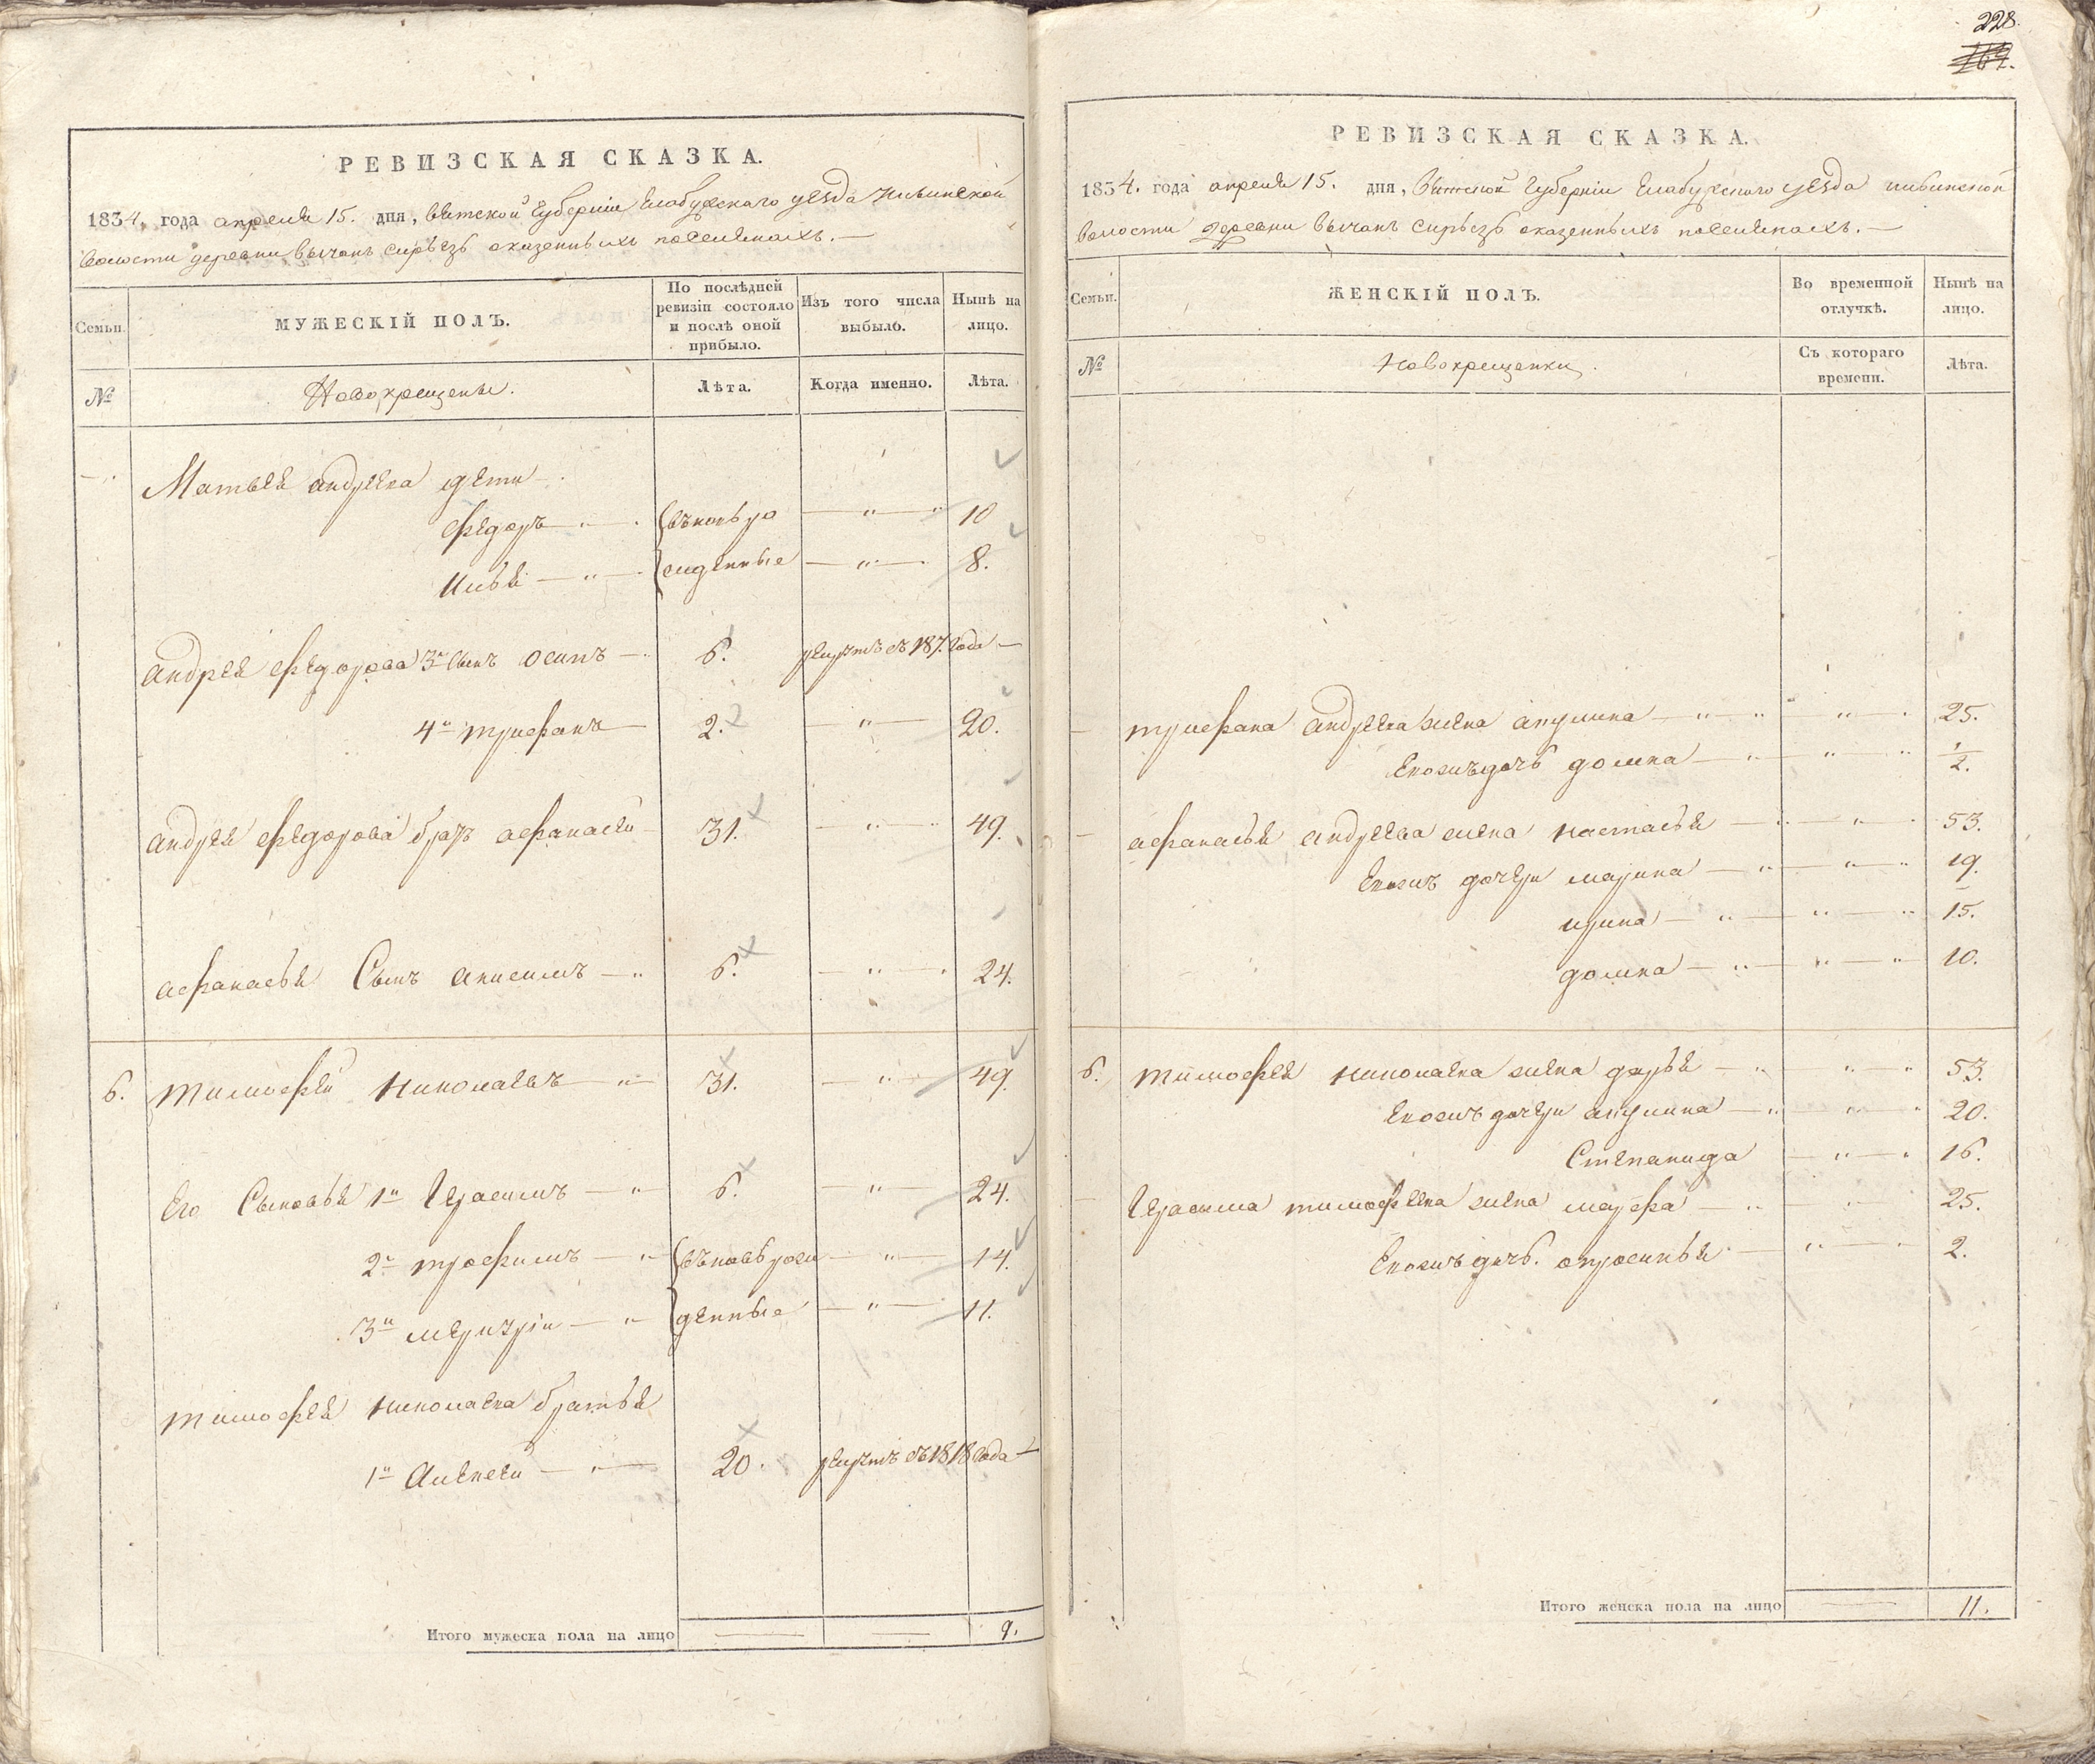 РЕВИЗСКАЯ СКАЗКА.
1834, года апреля 15. дня, вятской Губернiи Елабужскаго уезда
волости деревни вычанъ сирьезъ оказенныхъ поселянахъ.—
Семьи.
МУЖЕСКIЙ ПОЛЪ.
По послѣдней ревизiи состояло и послѣ оной прибыло.
Изъ того числа выбыло.
Нынѣ на лицо.
№
Новокрещены.
Лѣта.
Когда именно.
Лѣта.
Матвея андреева дети
федоръ — {въновь ро — " — 10
илья — " — {жденные — " — 8.
андрея федорова 3й сынъ осипъ — 6. рекрутъ въ года —
4й трифанъ — 2. — " — 20.
андрея федорова братъ афанасей 31. — " — 49.
афанасья Сынъ анисимъ — 6. — " — 24.
6. тимофей николаевъ — 31. — " — 49.
Его Сыновья 1й Герасимъ — " 6. — " — 24.
2й трофимъ — " {въновь рож — " — 14.
3й меркурiй — " {денные — " — 11.
тимофея николаева братья
1й Алексей — " — 20. рекрутъ въ 1818 года —
Итого мужеска пола на лицо 9.
228.
РЕВИЗСКАЯ СКАЗКА.
1834. года апреля 15. дня, вятской Губернiи Елабужскаго уезда
волости деревни вычанъ сирьезъ оказенныхъ поселянахъ.—
Семьи.
ЖЕНСКIЙ ПОЛЪ.
Во временной отлучкѣ.
Нынѣ на лицо.
№
Новокрещенки.
Съ котораго времени.
Лѣта.
трифана андреева жена акулина — " " — 25.
Ево жъ дочь домна — " " — " 1/2.
афанасья андреева жена настасья — " — 53.
Ево жъ дочери марина — " — " — " 19.
ирина — " — " — " 15.
домна — " — " — " 10.
6. тимофея николаева жена дарья — " " — " 53.
Ево жъ дочери акулина — " " — " 20.
Степанида — " — " 16.
Герасима тимофеева жена марфа — " 25.
Ево жъ дочь. апросинья — " — 2.
Итого женска пола на лицо 11.